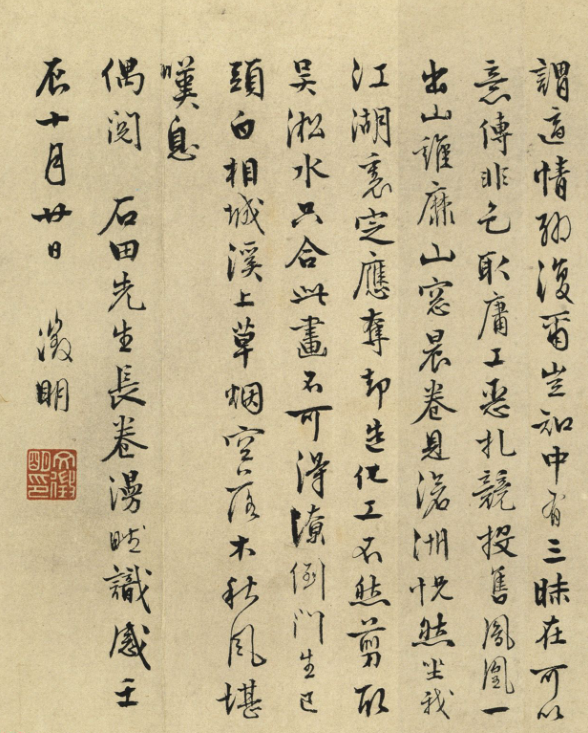 謂適情聊復爾豈知中有三昧在可以
意傳非色取庸工惡札競投售鳳凰一
出山雞靡山窓晨卷見滄洲恍然坐我
江湖裏定應奪却造化工不然剪取
吳淞水只合此畫不可得潦倒門生已
頭白相城溪上草烟空落木秋風堪
嘆息
偶閱 石田先生長卷漫賦識感壬
辰十月廿日 徵明
文徵明印